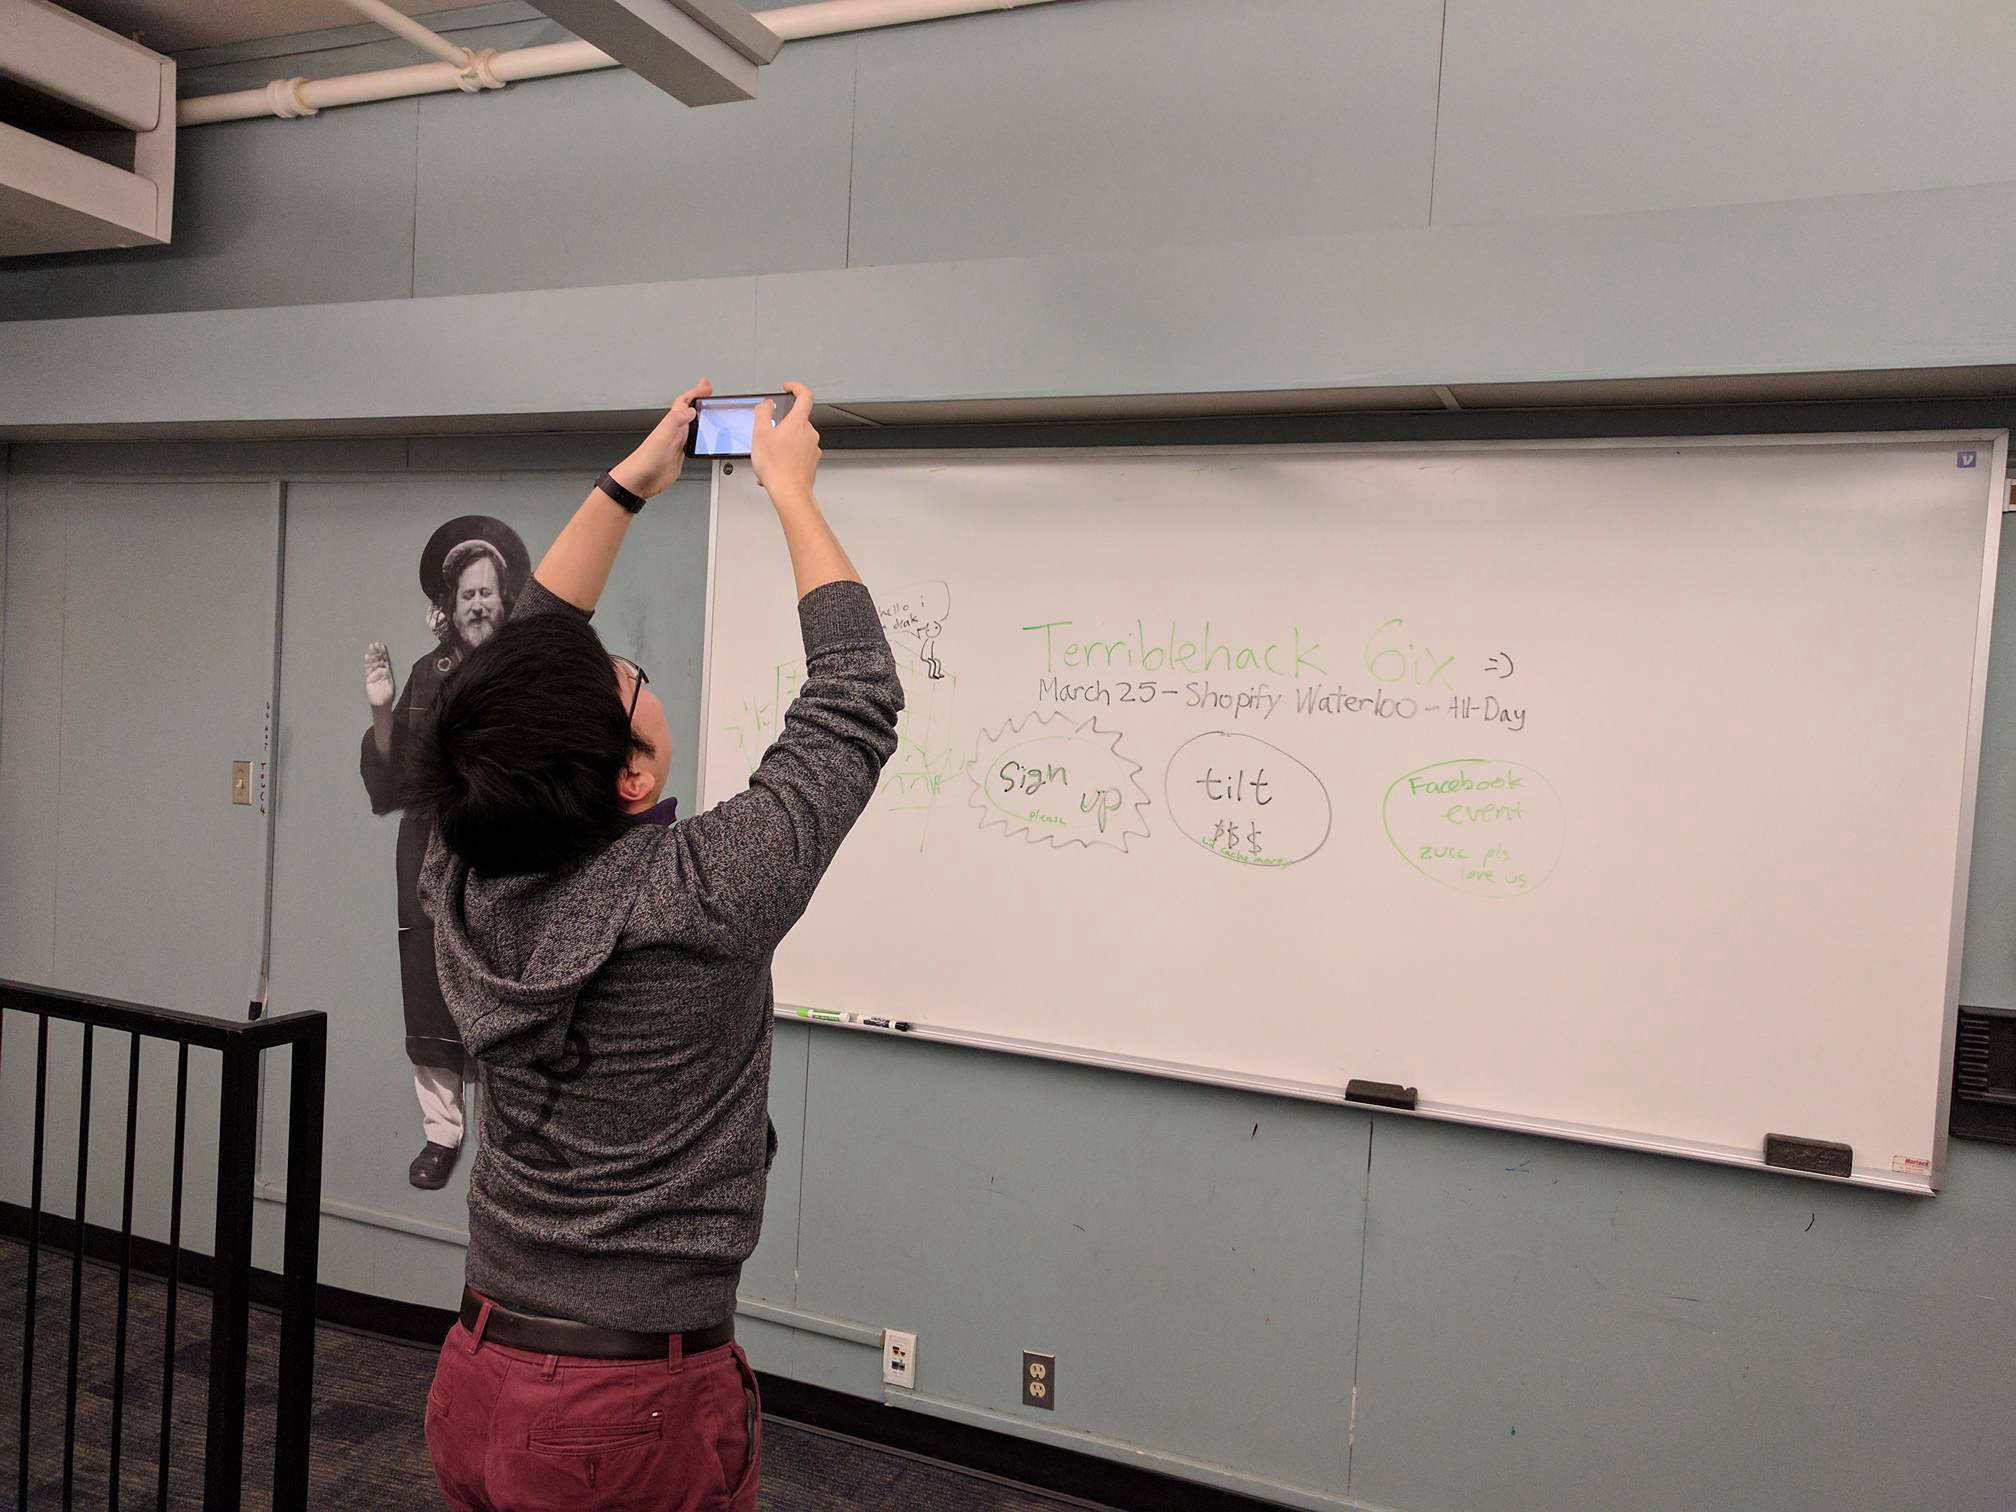 hello i
drak
Terriblehack 6ix =)
March 25 - Shopify Waterloo - All-Day
Sign
up
please
tilt
$$$
Facebook
event
zucc pls
love us